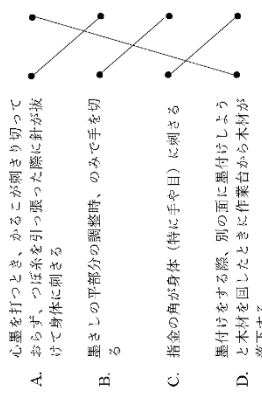 A. 心墨を打つとき、かるこが刺さり切って
おらず、つぼ糸を引っ張った際に針が抜
けて身体に刺さる
B. 墨さしの平部分の調整時、のみで手を切
る
C. 指金の角が身体（特に手や目）に刺さる
D. 墨付けをする際、別の面に墨付けしよう
と木材を回したときに作業台から木材が
落下する